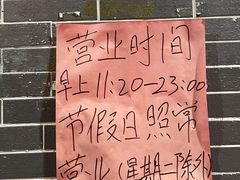 营业时间
早上11:20-23:00
节假日照常
营业(星期一除外)